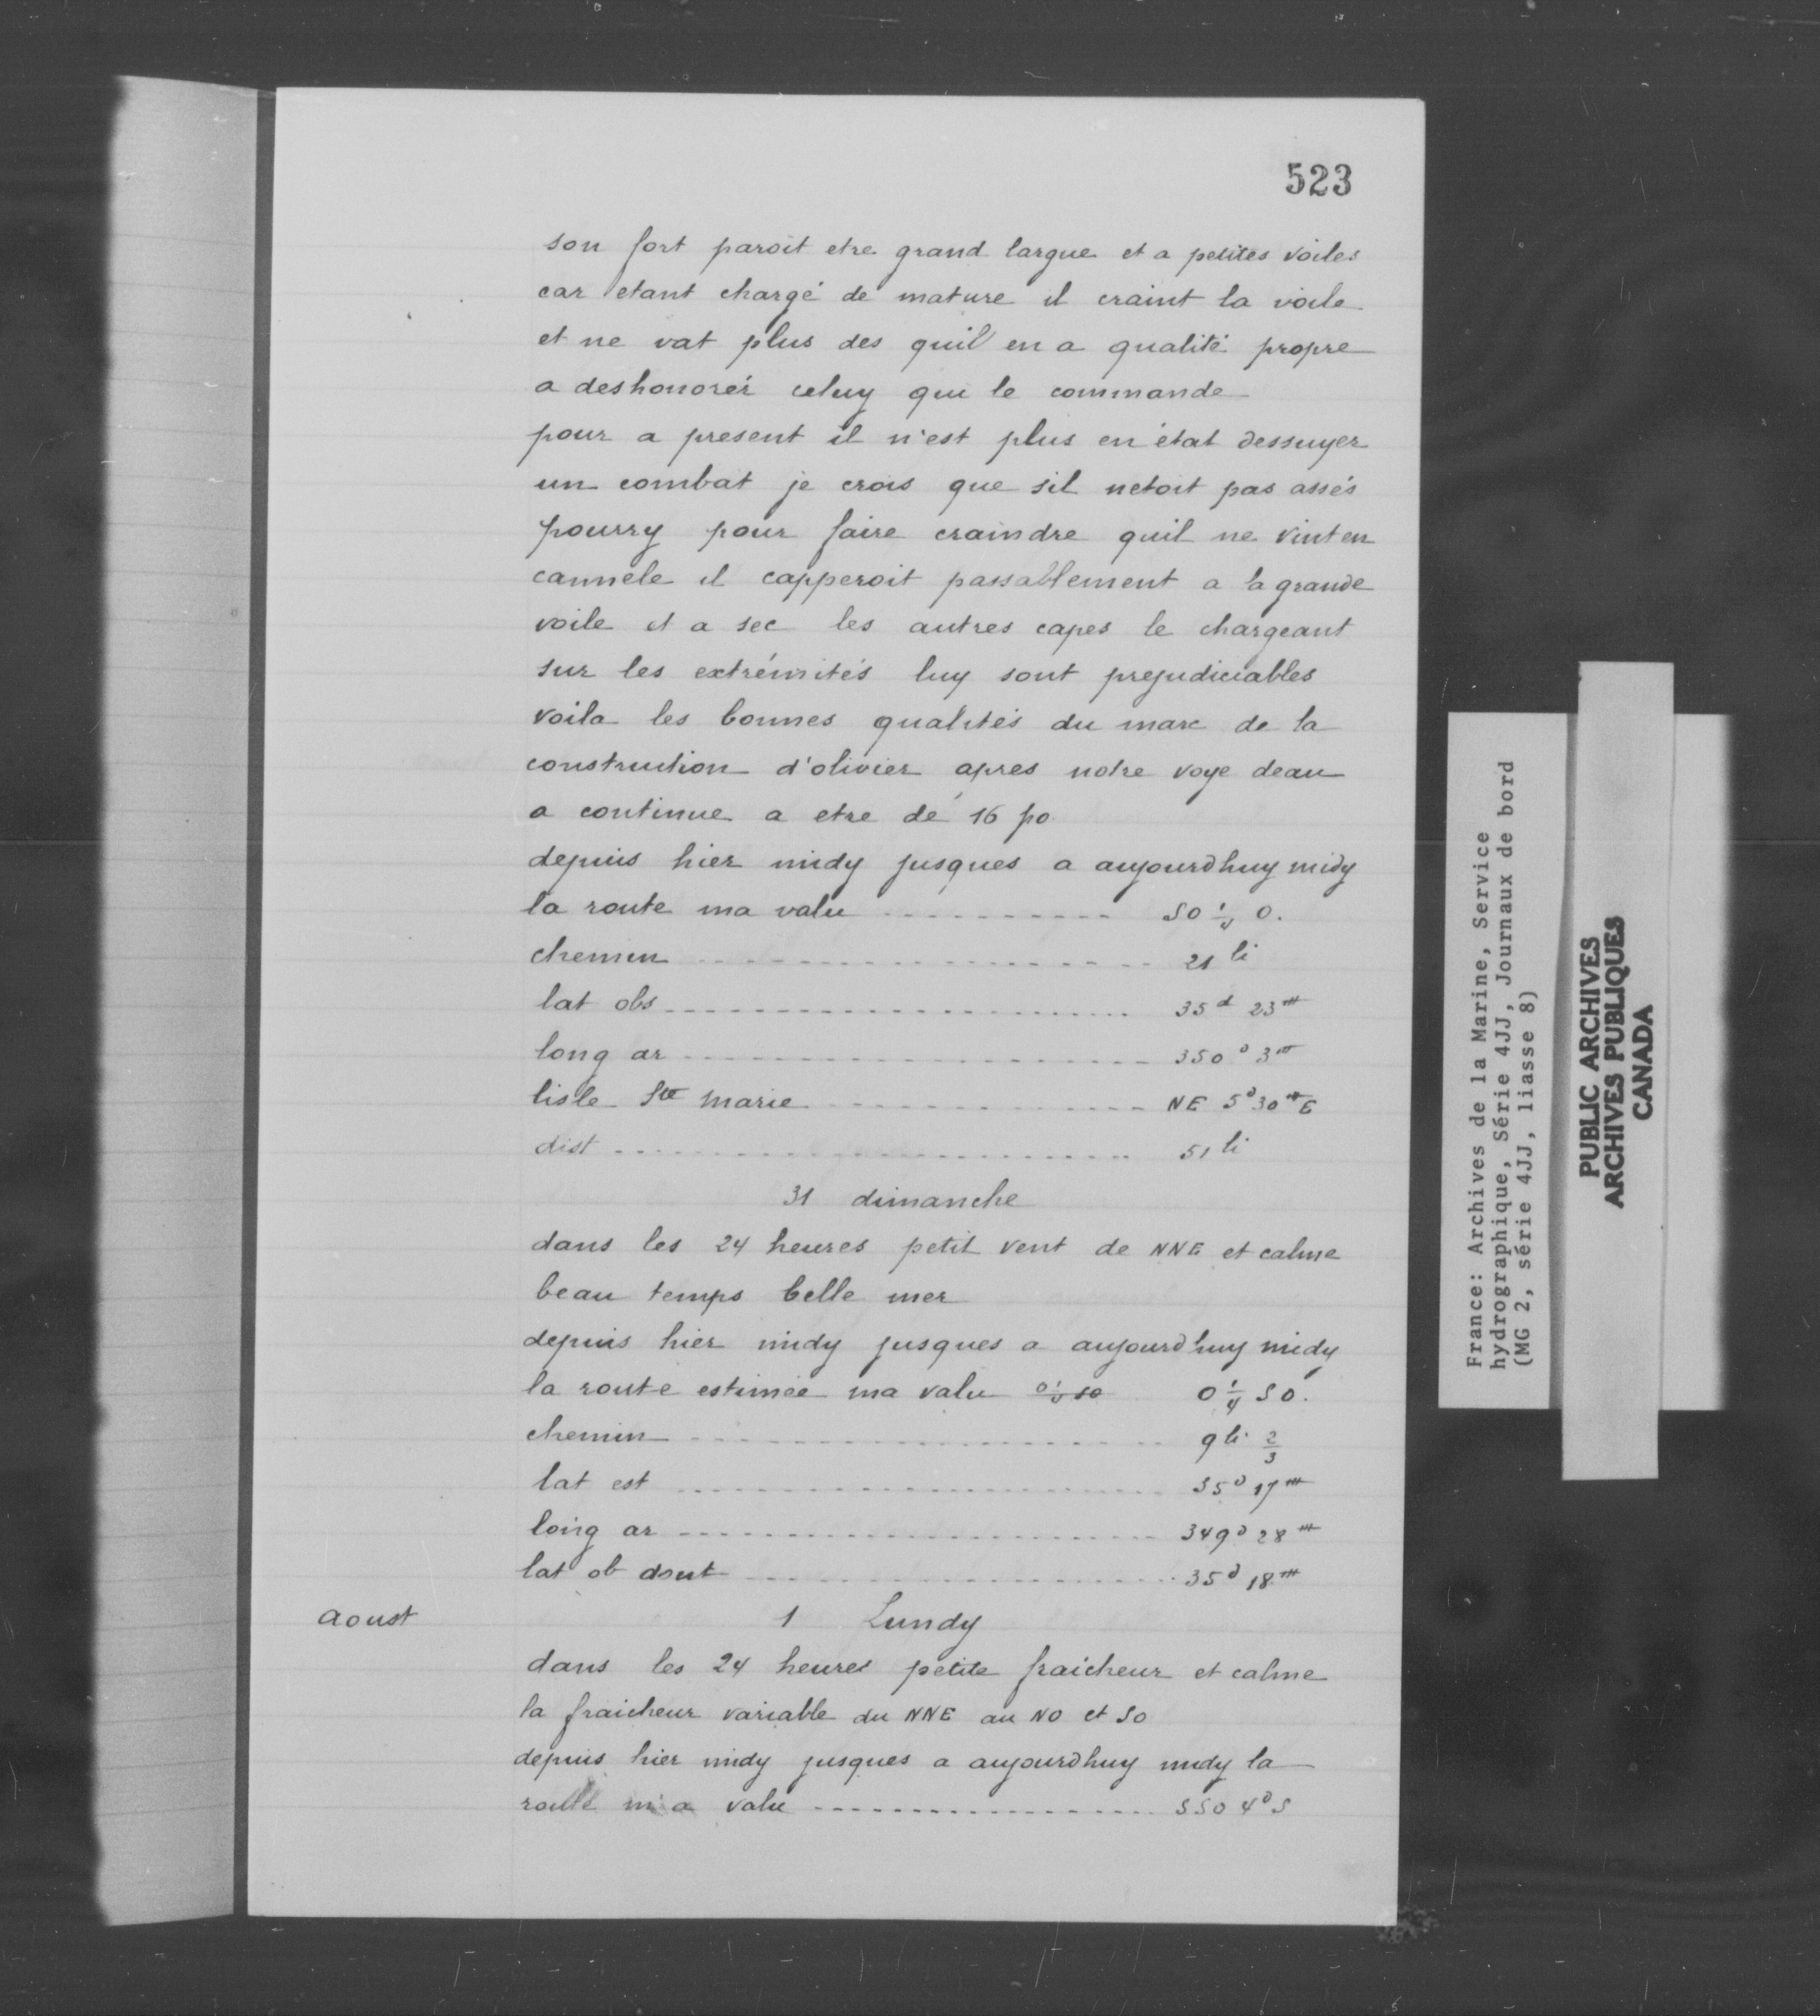 523
son fort paroit etre grand largue et a petites voiles
car etant chargé de mature il craint la voile
et ne vat plus des quil en a qualité propre
a deshonorér celuy qui le commande
pour a present il n'est plus en état dessuyer
un combat je crois que sil netoit pas assés
pourry pour faire craindre quil ne vint en
cannele il capperoit passablement a la grande
voile et a sec les autres capes le chargeant
sur les extrémités luy sont prejudiciables
voila les bonnes qualités du marc de la
construction d'olivier apres notre voye deau
a continue a etre de 16 po
depuis hier midy jusques a aujourdhuy midy
la route ma valu ---------- SO 1/4 O.
chemin ---------- 21 li
lat obs ---------- 35d 23m
long ar ---------- 350d 3m
lisle Ste marie ---------- NE 5d 30m E
dist ---------- 51 li
31 dimanche
dans les 24 heures petit vent de NNE et calme
beau temps belle mer
depuis hier midy jusques a aujourdhuy midy
la route estimée ma valu O 1/4 SO O 1/4 SO.
chemin ---------- 9 li 2/3
lat est ---------- 35d 17m
long ar ---------- 349d 28m
lat ob ---------- 35d 18m
aoust 1 Lundy
dans les 24 heures petite fraicheur et calme
la fraicheur variable du NNE au NO et SO
depuis hier midy jusques a aujourdhuy midy la
route m'a valu ---------- SSO 4d S
France: Archives de la Marine, Service
hydrographique, Série 4JJ, Journaux de bord
(MG 2, série 4JJ, liasse 8)
PUBLIC ARCHIVES
ARCHIVES PUBLIQUES
CANADA